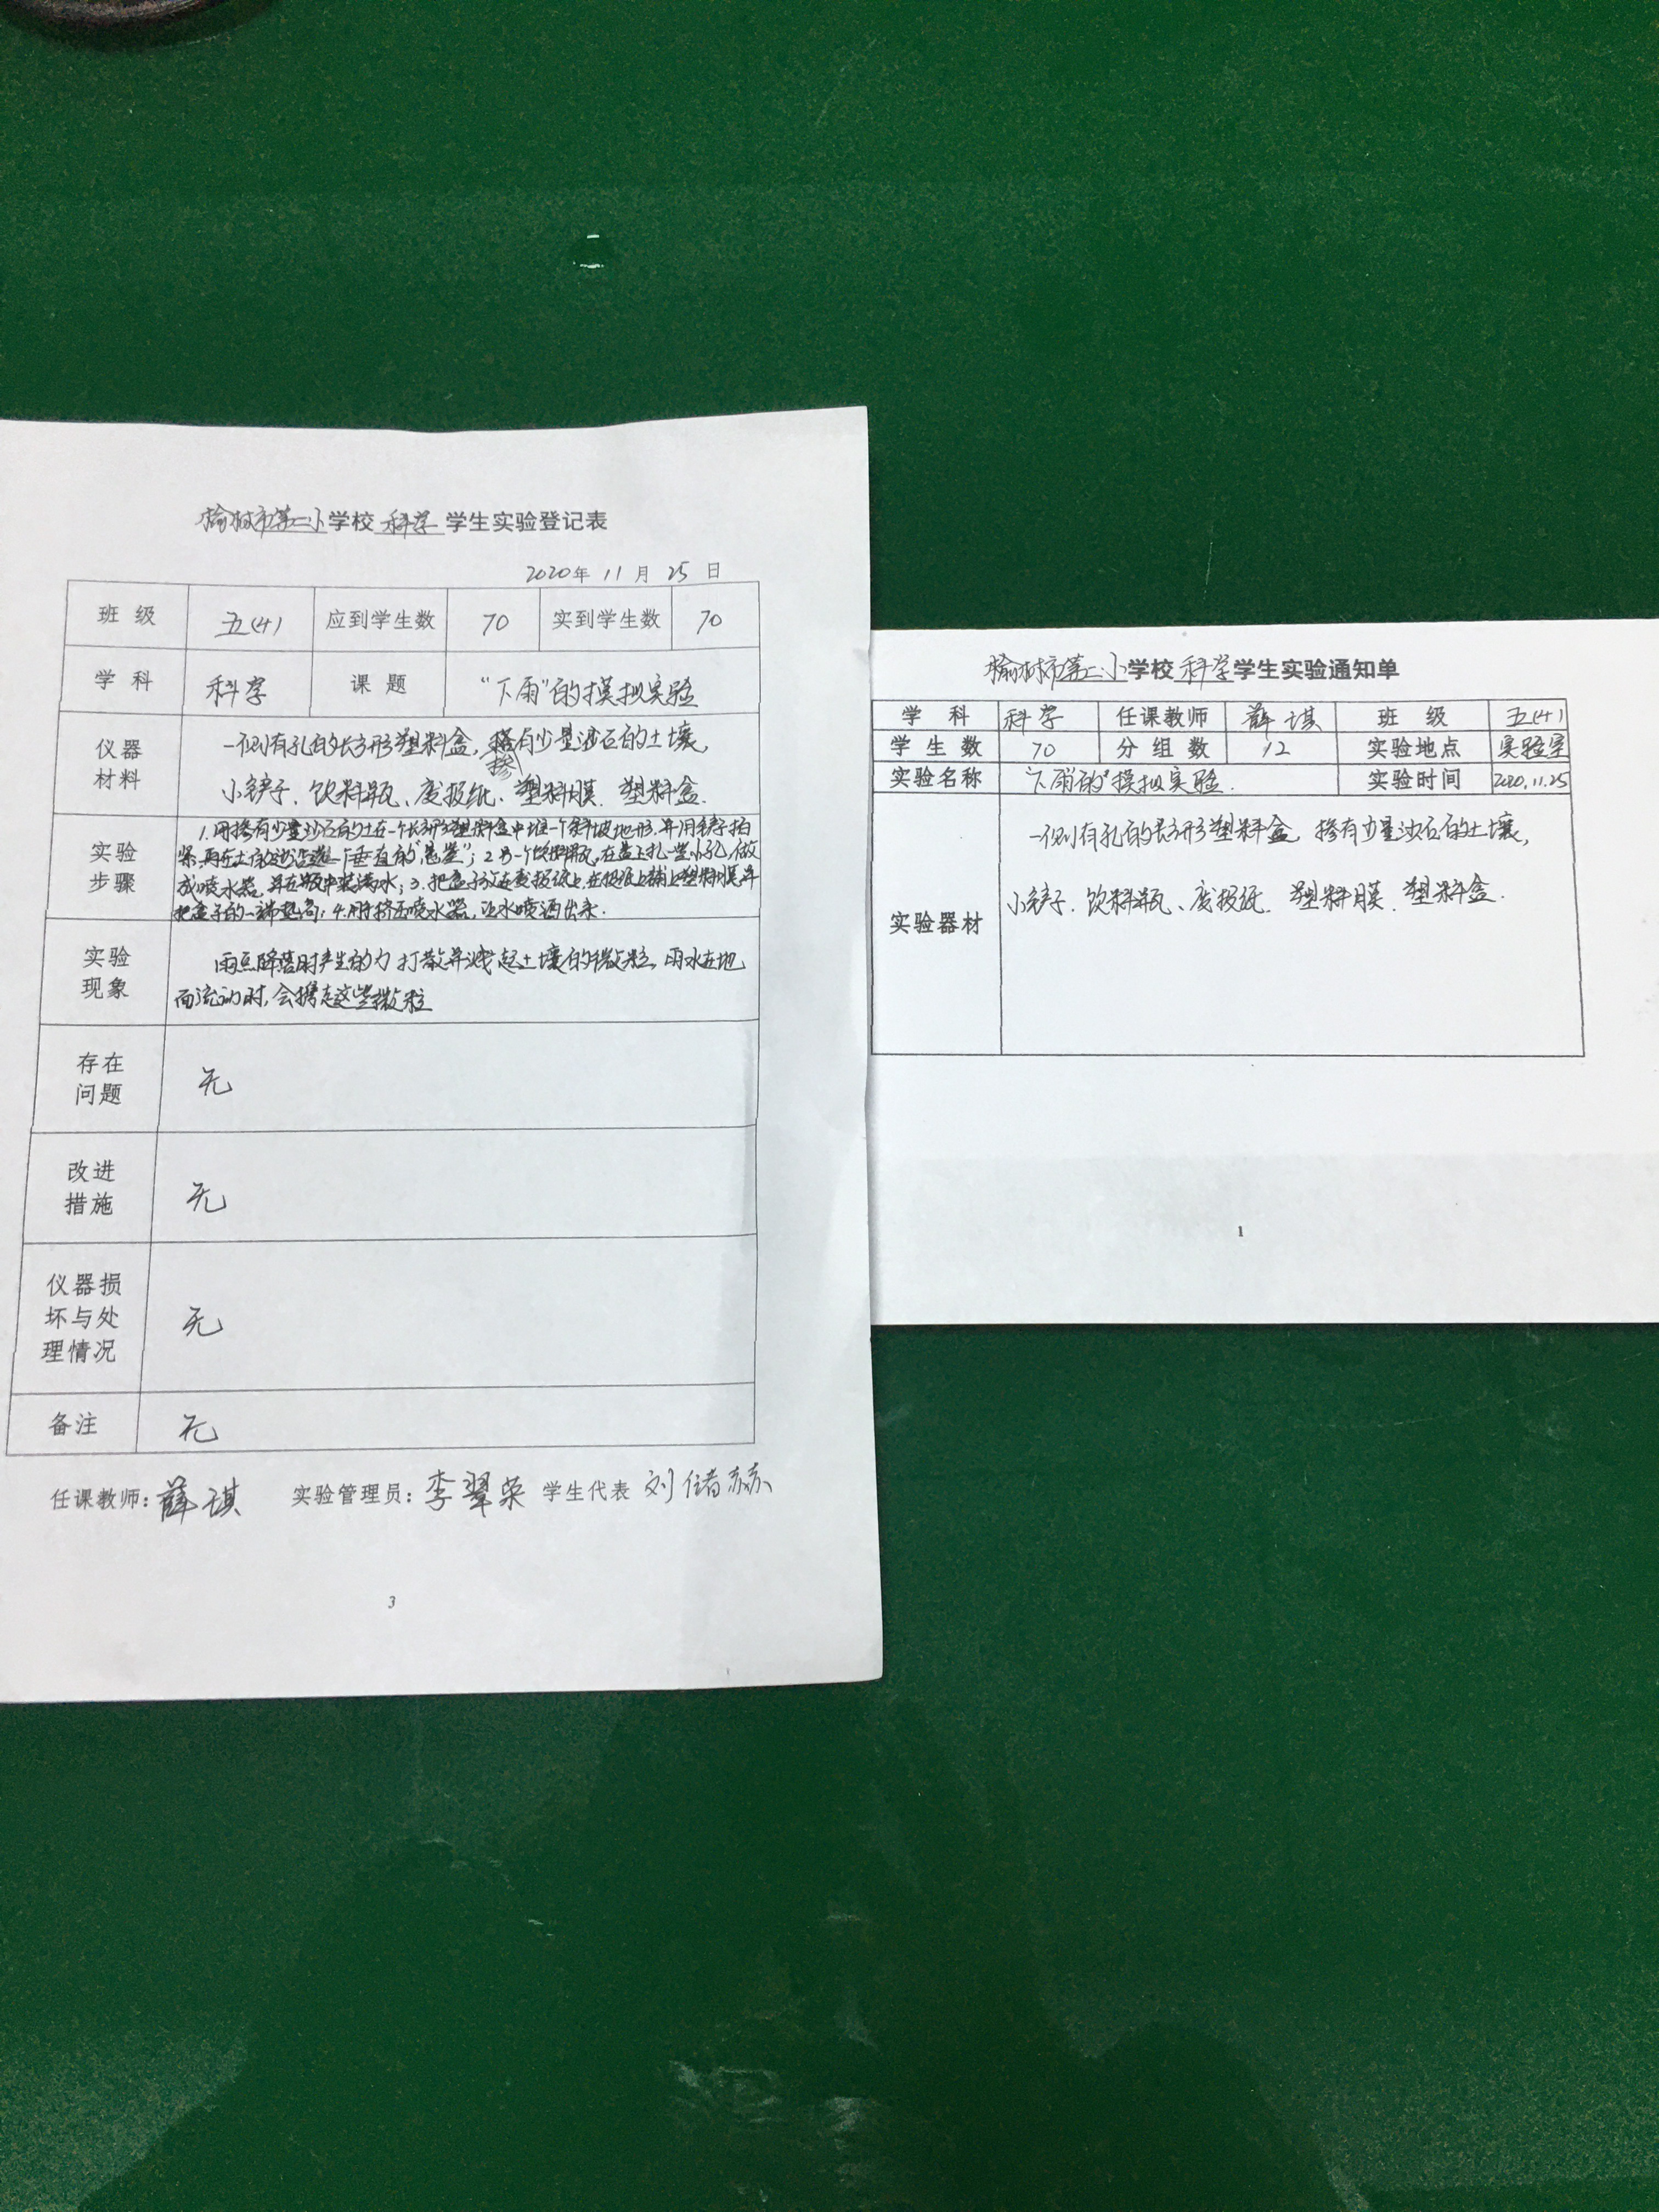 榆树市第二小学校 科学 学生实验登记表
2020年 11 月 25 日
班 级 五(4) 应到学生数 70 实到学生数 70
学 科 科学 课 题 “下雨”的模拟实验
仪器材料 一侧有孔的长方形塑料盒，掺有少量沙石的土壤，
小铲子、饮料瓶、废报纸、塑料膜、塑料盒.
实验步骤 1.用掺有少量沙石的土在一个长方形塑料盒中堆一个斜坡地形，并用铲子拍
紧，再在土的边沿造一个垂直的“悬崖”；2.另一个饮料瓶，在盖上扎一些小孔，做
成喷水器，并在瓶中装满水；3.把盒子放在废报纸上，在报纸上铺上塑料膜并
把盒子的一端垫高；4.用挤压喷水器，让水喷洒出来.
实验现象 雨点降落时产生的力打散并溅起土壤的微粒，雨水在地
面流动时，会携走这些微粒
存在问题 无
改进措施 无
仪器损坏与处理情况 无
备注 无
任课教师：薛琪 实验管理员：李翠荣 学生代表 刘
3
榆树市第二小学校 科学 学生实验通知单
学 科 科学 任课教师 薛琪 班 级 五(4)
学 生 数 70 分 组 数 12 实验地点 实验室
实验名称 “下雨的”模拟实验. 实验时间 2020.11.25
实验器材 一侧有孔的长方形塑料盒，掺有少量沙石的土壤，
小铲子、饮料瓶、废报纸、塑料膜、塑料盒.
1